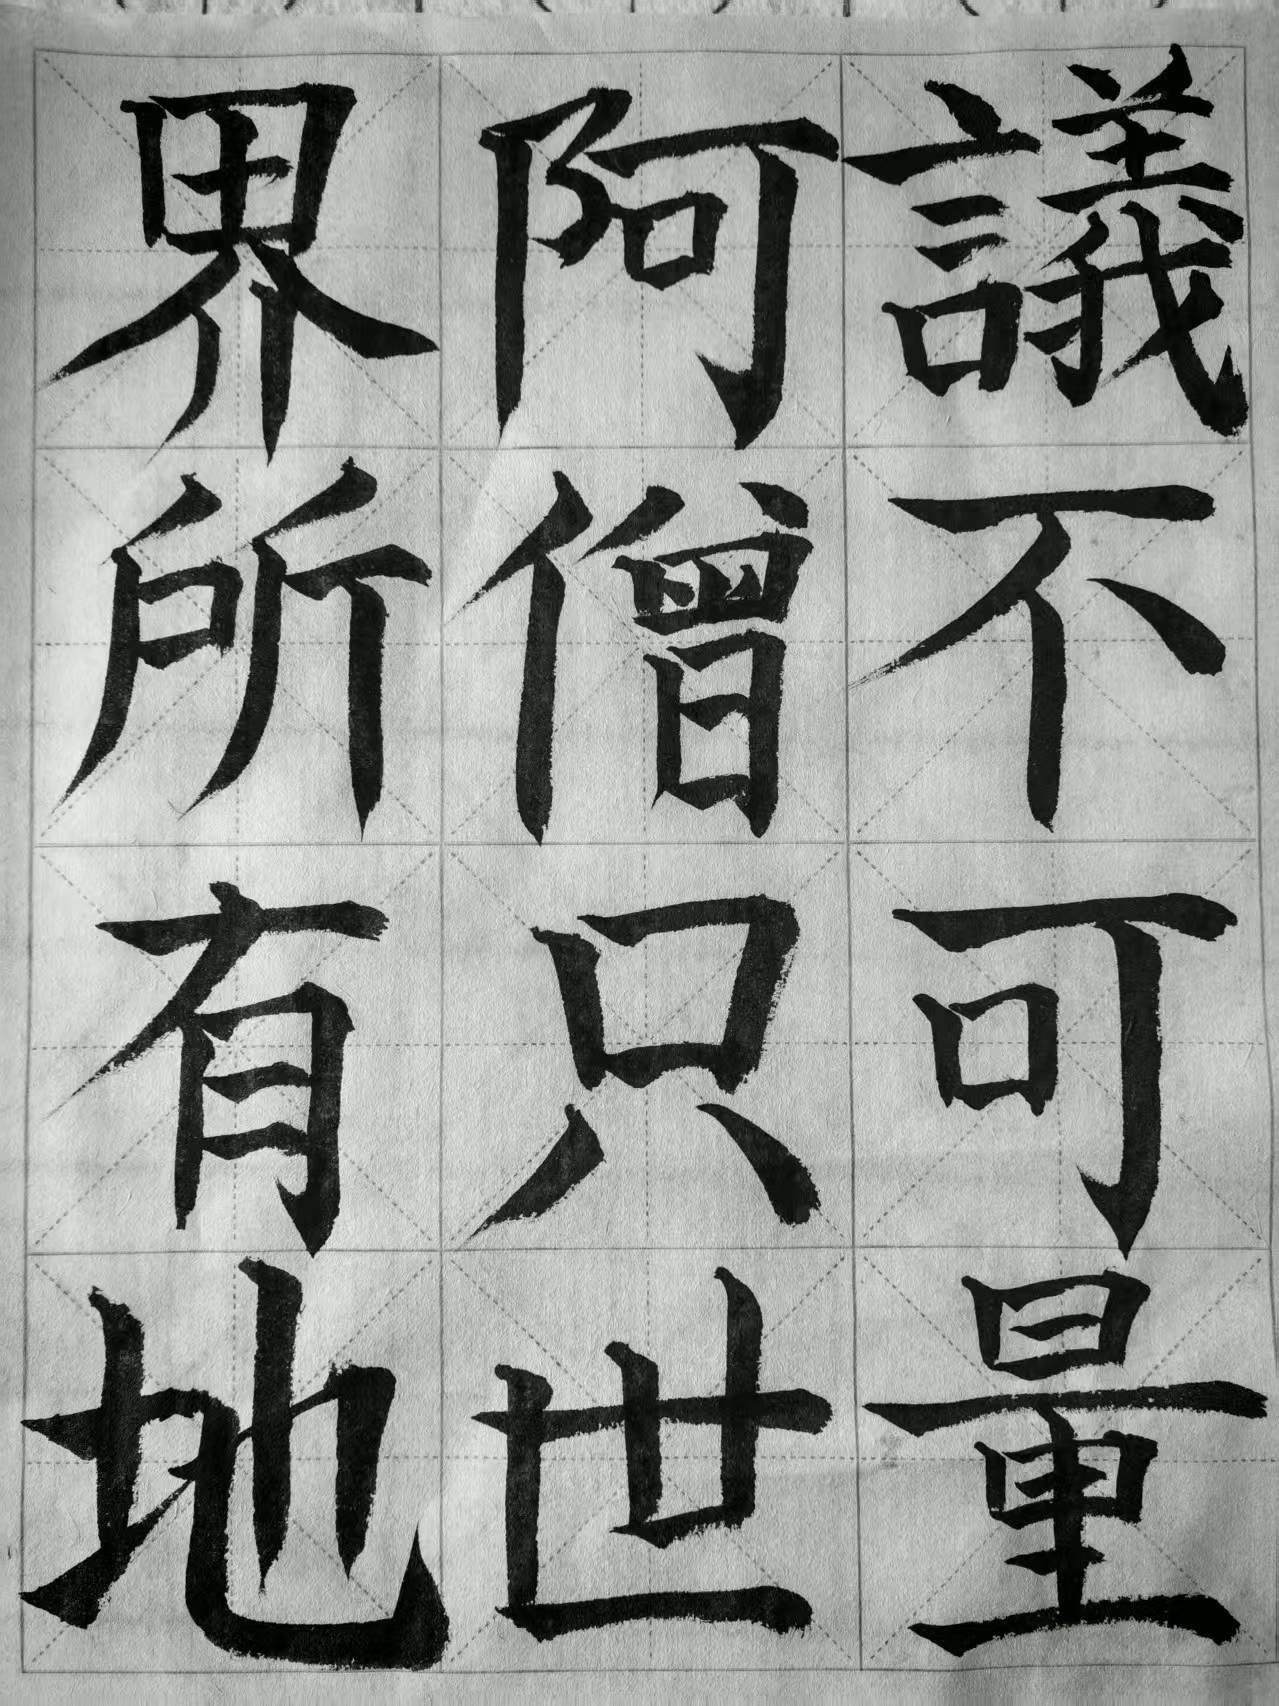 議不可量
阿僧只世
界所有地